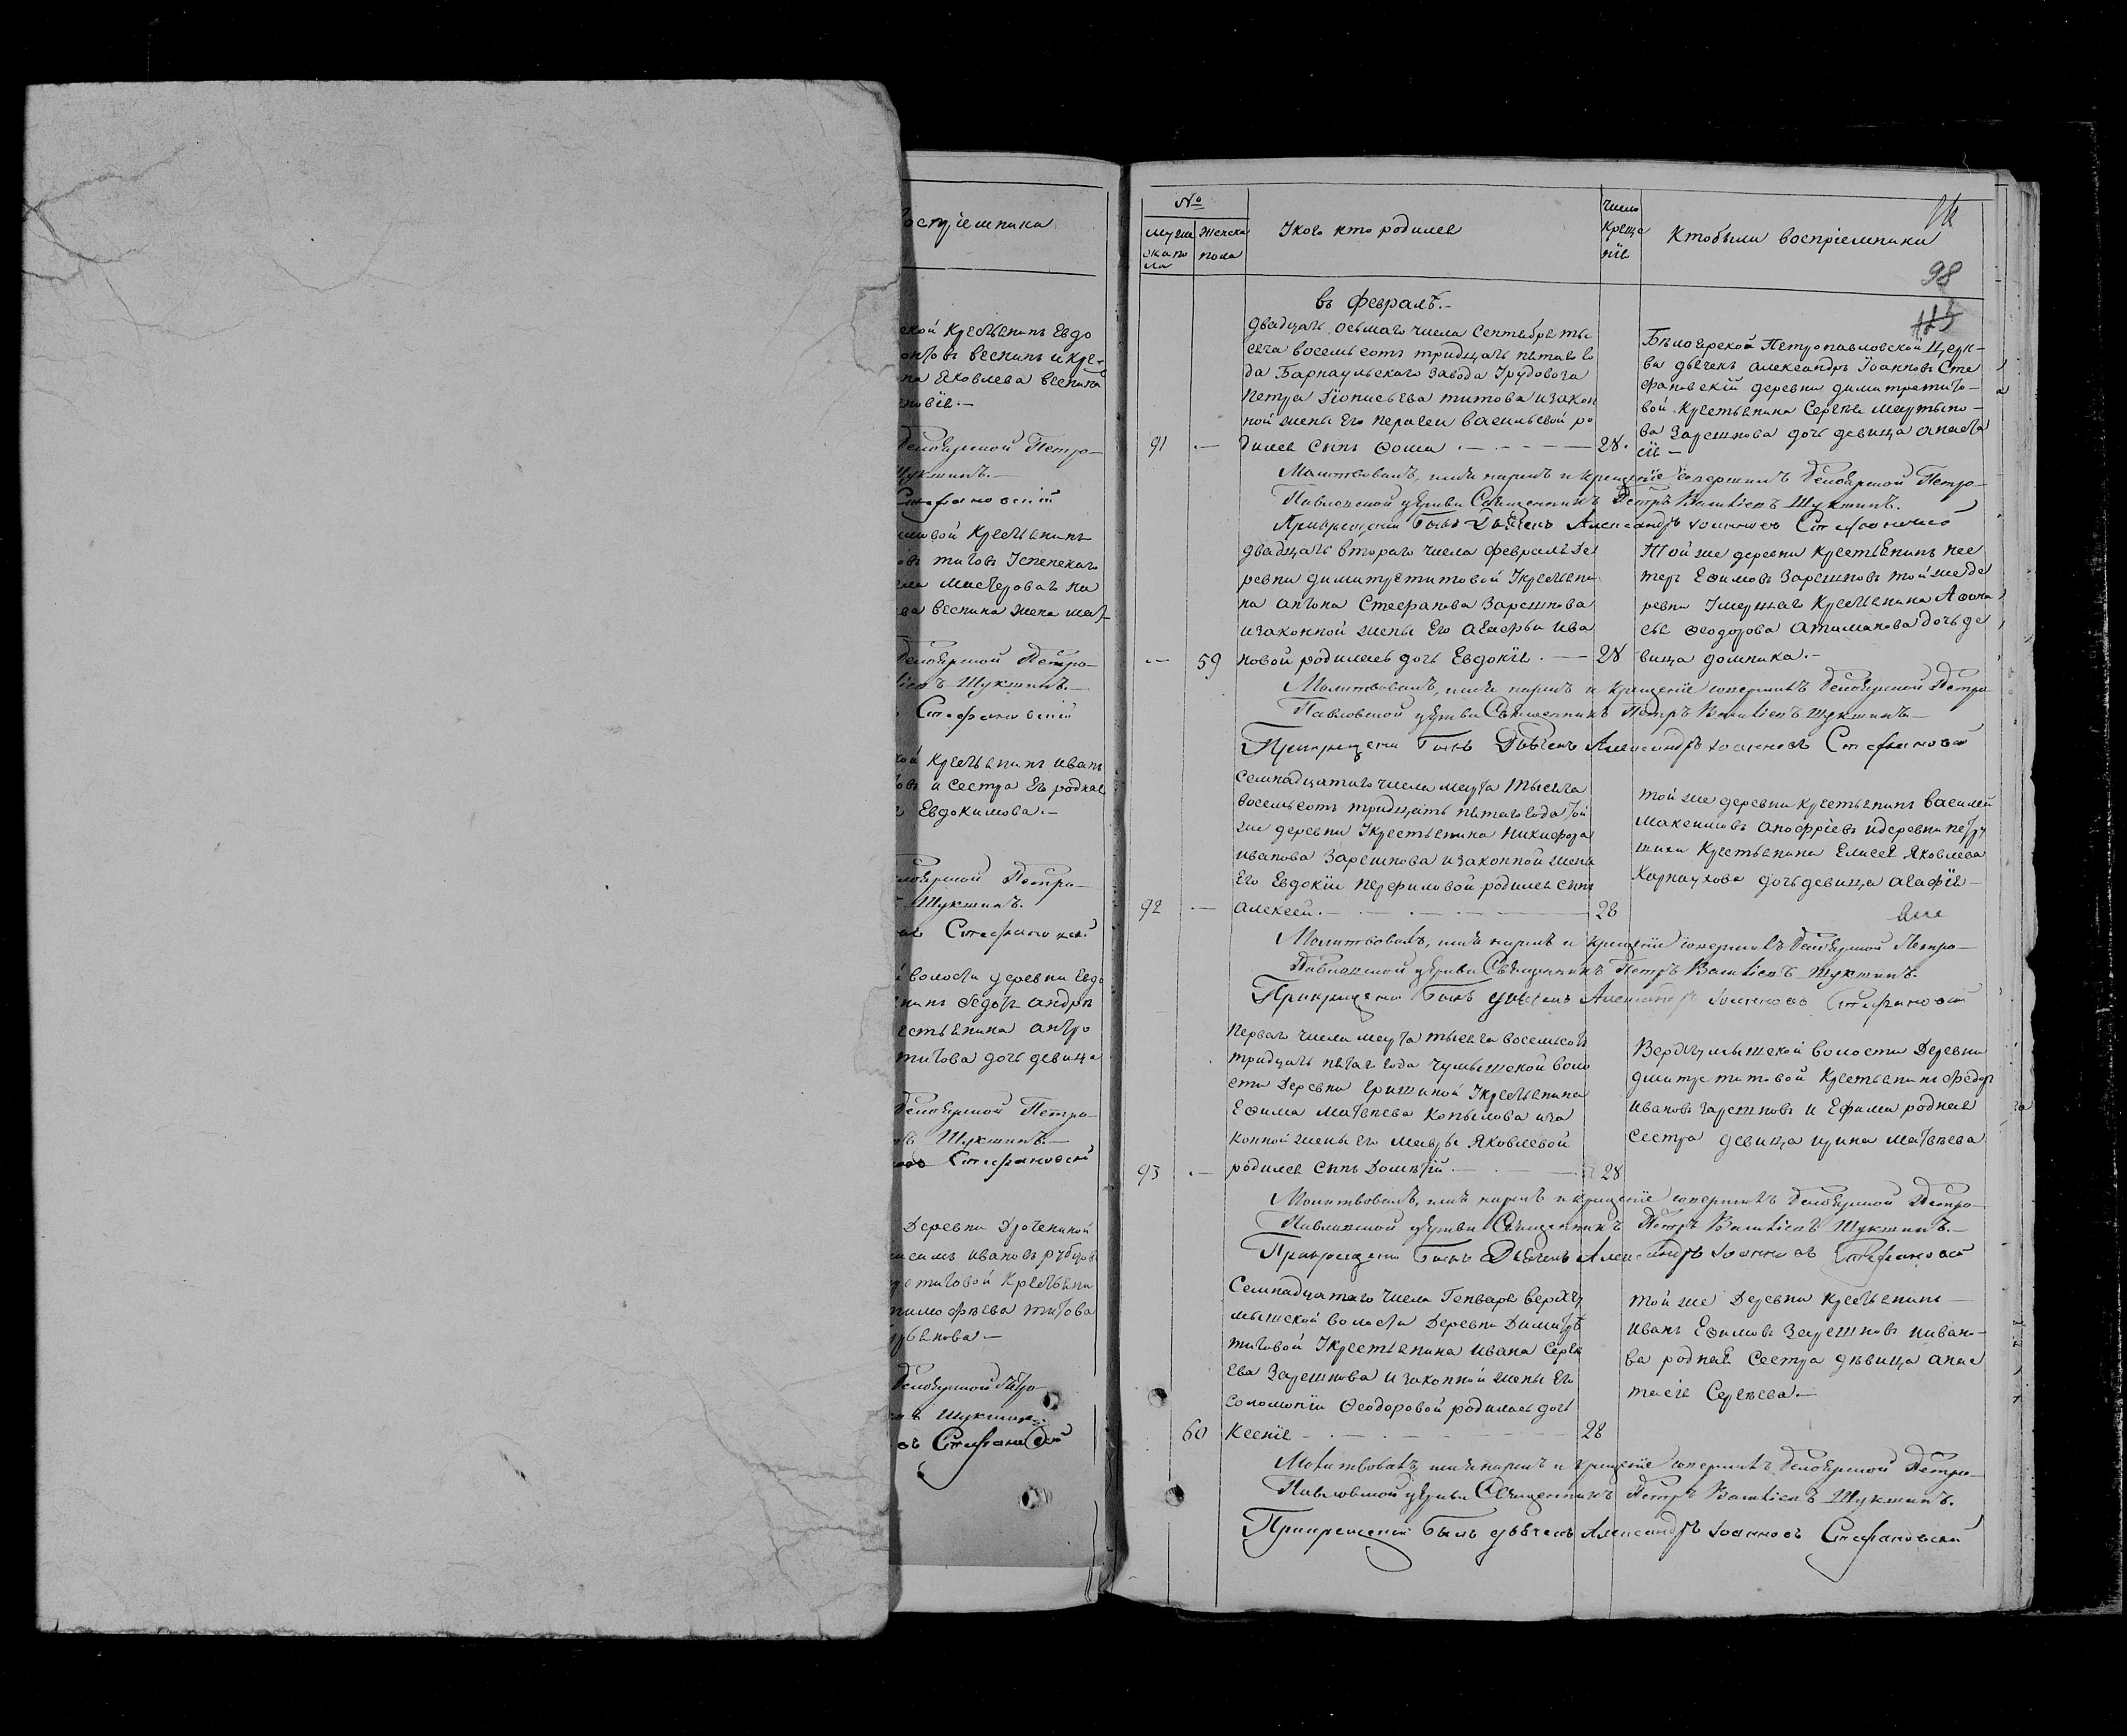 остріемника
ской Крестьянинъ Евдо
онтовъ Веснинъ и кре-
на Яковлева Веснина
новіе.—
Белоярской Петро-
Щукшинъ.—
Стефановскій
мовой Крестьянинъ
овъ титовъ Успенскаго
Мастероваго
ва Веснина жена
Белоярской Петро-
Шукшинъ.—
Стефановскій
кой Крестьянинъ иванъ
овъ и сестра Его родная
Евдокимова.—
Белоярской Петро-
Шукшинъ.
Стефановскій
волости деревни Евдо
нинъ Федоръ андре
естьянина антро
титова дочь девица
Белоярской Петро-
Шукшинъ.—
Стефановскій
Деревни
ивановъ
титовой Крестьяни
титова
Белоярской Петро
Шукшинъ
Стефановскій
№
мужескапола
Женска пола
Укого кто родился
Число Крещенія
Ктобыли воспріемники
98
115
въ февралѣ.—
двадцать осьмаго числа Сентября ты
сяча восемьсотъ тридцать пятаго го
да Барнаульскаго завода Урядова
Петра Діонисьева титова изакон
ной жены Его Пелагеи Васильевой ро
91 — дился сынъ Фома — 28.
Бѣлоярской Петропавловской Церк-
ви дьячекъ александръ Іоанновъ Сте
фановскій деревни димитретито-
вой Крестьянина Сергѣя Мартыно-
ва Зарешнова дочь девица анаста
сія —
Молитвовалъ, имя нарекъ и крещеніе совершилъ Белоярской Петро-
Павловской церкви Священникъ Петръ Васильевъ Шукшинъ.
Прикрещеніи былъ Дьячекъ Александръ Іоанновъ Стефановской
двадцать втораго числа февраля де
ревни димитретитовой Укрестьяни
на антона Стефанова Зарешнова
изаконной жены Его агафьи ива
— 59 новой родилась дочь Евдокія. — 28
Той же деревни крестьянинъ нес
теръ Ефимовъ Зарешновъ той же де
ревни Умершаго Крестьянина Афона
сья Феодорова Атаманова дочь де
вица домника.—
Молитвовалъ, имя нарекъ и крещеніе совершилъ Белоярской Петро
Павловской церкви Священникъ Петръ Васильевъ Шукшинъ—
Прикрещеніи былъ Дьячекъ Александръ Іоанновъ Стефановской
Семнадцатаго числа марта тысяча
восемьсотъ тридцать пятаго года той
же деревни Укрестьянина Никифора
иванова Зарешнова изаконной жены
Его Евдокіи Перфиловой родился сынъ
92 — алексей. — 28
той же деревни крестьянинъ василей
Максимовъ анофріевъ идеревни петру
шихи Крестьянина Елисея Яковлева
Харнаухова дочь девица агафія—
Молитвовалъ, имя нарекъ и крещеніе совершилъ Белоярской Петро—
Павловской церкви Священникъ Петръ Васильевъ Шукшинъ.
Прикрещеніи былъ дьячекъ Александръ Іоанновъ Стефановской
Перваго числа марта тысяча восемьсотъ
тридцать пятаго года чумышской воло
сти Деревни Гришиной Укрестьянина
Ефима Матвѣева Копылова иза
конной жены Его мавры Яковлевой
93 — родился сынъ Дометій — 28
Верхчумышской волости Деревни
дмитретитовой Крестьянинъ Федоръ
ивановъ Зарешновъ и Ефима родная
сестра девица ирина Матвѣева
Молитвовалъ, имя нарекъ и крещеніе совершилъ Белоярской Петро-
Павловской церкви Священникъ Петръ Васильевъ Шукшинъ.—
Прикрещеніи былъ Дьячекъ Александръ Іоанновъ Стефановской
Семнадцатаго числа Генваря верхчу
мышской волости Деревни Димитре
титовой Укрестьянина ивана Серге
ева Зарешнова и законной жены Его
соломоніи Феодоровой родилась дочь
60 Ксенія — 28
той же Деревни крестьянинъ—
иванъ Ефимовъ Зарешновъ иивано-
ва родная Сестра дѣвица анас
тасія Сергѣева.—
Молитвовалъ, имя нарекъ и крещеніе совершилъ Белоярской Петро—
Павловской церкви Священникъ Петръ Васильевъ Шукшинъ.
Прикрещеніи былъ дьячекъ Александръ Іоанновъ Стефановской